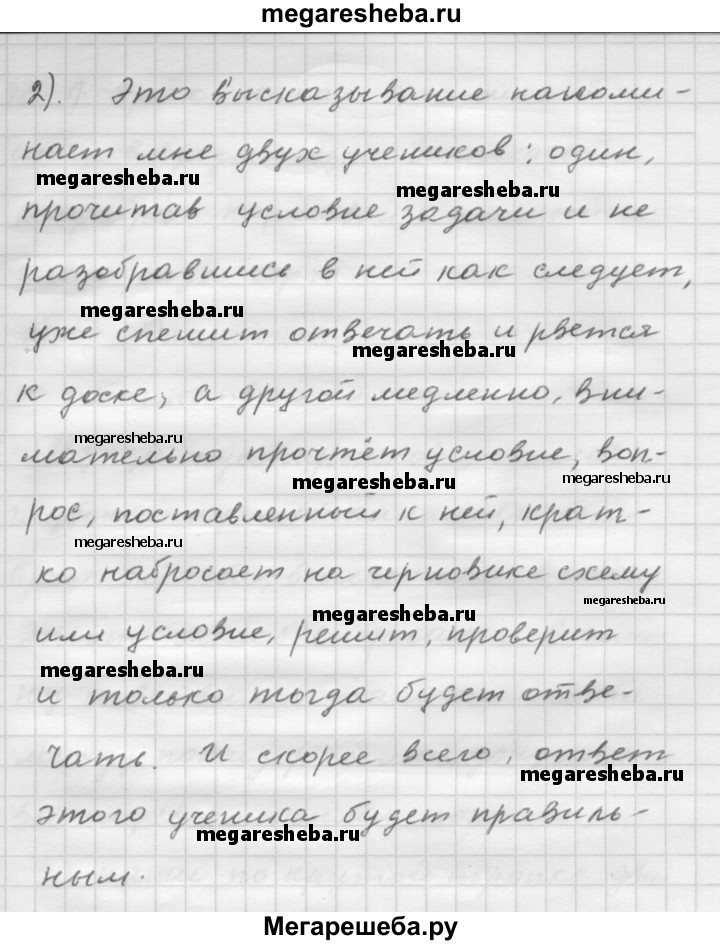 megaresheba.ru
2). Это высказывание напоми-
нает мне двух учеников: один,
megaresheba.ru
megaresheba.ru
прочитав условие задачи и не
разобравшись в ней как следует,
megaresheba.ru
уже спешит отвечать и рвется
megaresheba.ru
к доске, а другой медленно, вни-
megaresheba.ru
мательно прочтёт условие, воп-
megaresheba.ru
megaresheba.ru
рос, поставленный к ней, крат-
megaresheba.ru
ко набросает на черновике схему
megaresheba.ru
megaresheba.ru
или условие, решит, проверит
megaresheba.ru
и только тогда будет отве-
чать. И скорее всего, ответ
megaresheba.ru
этого ученика будет правиль-
megaresheba.ru
ным.
Мегарешеба.ру